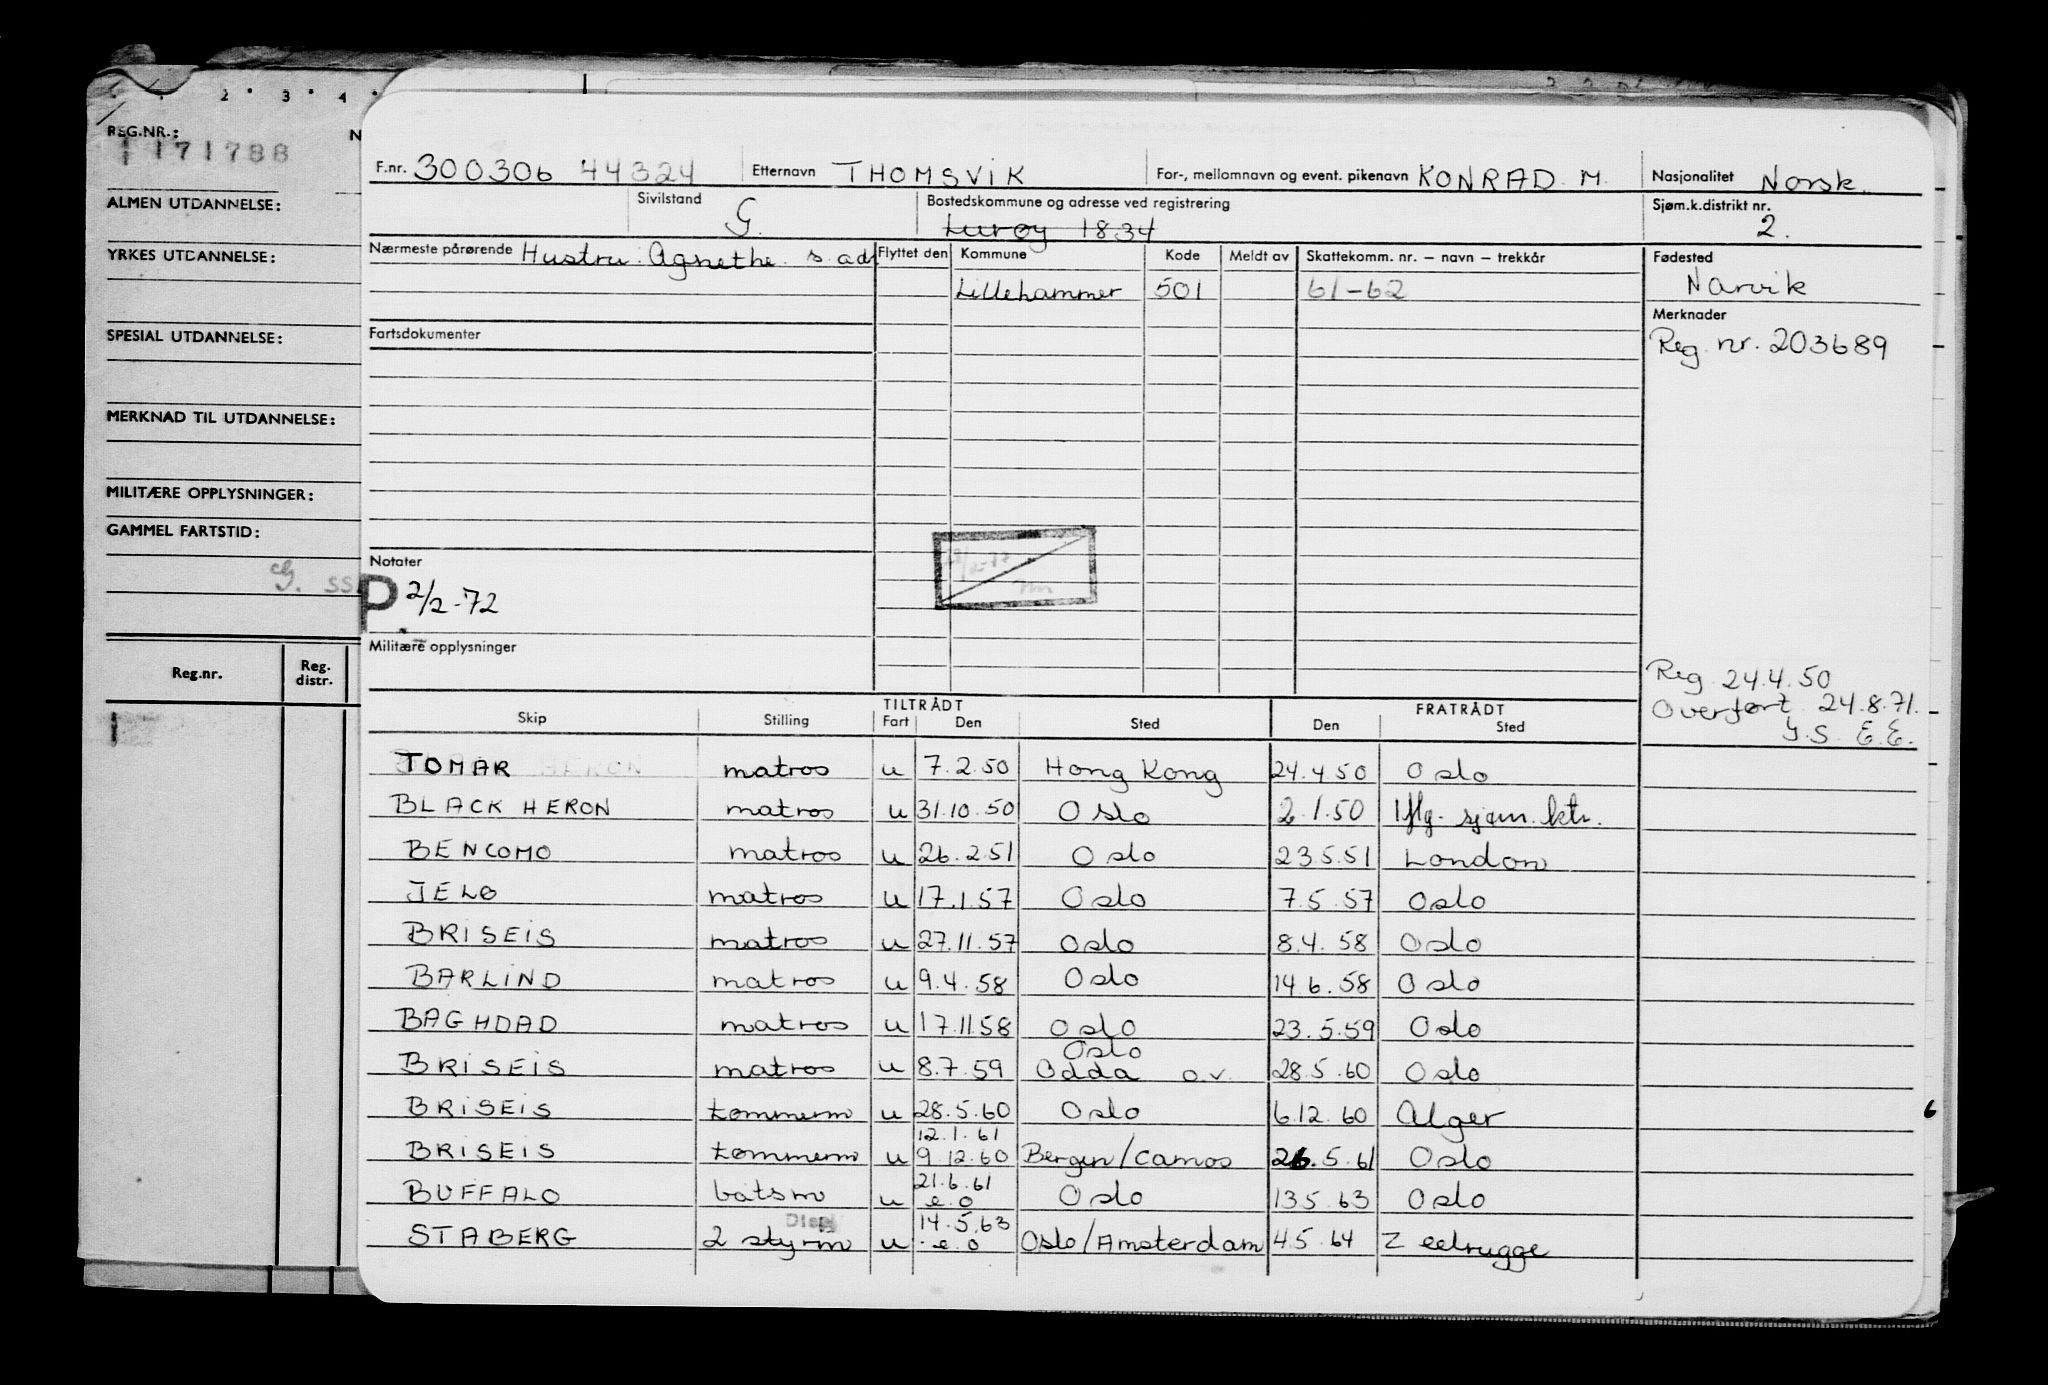 2 · 3 · 4 ·
REG.NR.: N
171788
ALMEN UTDANNELSE:
YRKES UTDANNELSE:
SPESIAL UTDANNELSE:
MERKNAD TIL UTDANNELSE:
MILITÆRE OPPLYSNINGER:
GAMMEL FARTSTID:
G. SS
Reg.nr. Reg. distr.
F.nr. 300306 44324 Etternavn THOMSVIK For-, mellomnavn og event. pikenavn KONRAD M. Nasjonalitet Norsk.
Sivilstand G. Bostedskommune og adresse ved registrering Sjøm.k.distrikt nr.
Lurøy 1834 2.
Nærmeste pårørende Hustru: Agnethe s. adr Flyttet den Kommune Kode Meldt av Skattekomm. nr. – navn – trekkår Fødested
Lillehammer 501 61-62 Narvik
Fartsdokumenter Merknader
Reg. nr. 203689
Notater
P. 2/2-72
Militære opplysninger
Reg. 24.4.50
Overført 24.8.71.
Y.S. E.E.
TILTRÅDT FRATRÅDT
Skip Stilling Fart Den Sted Den Sted
TOMAR matros u 7.2.50 Hong Kong 24.4.50 Oslo
BLACK HERON matros u 31.10.50 Oslo 2.1.50 Iflg. sjøm. ktr.
BENCOMO matros u 26.2.51 Oslo 23.5.51 London
JELØ matros u 17.1.57 Oslo 7.5.57 Oslo
BRISEIS matros u 27.11.57 Oslo 8.4.58 Oslo
BARLIND matros u 9.4.58 Oslo 14.6.58 Oslo
BAGHDAD matros u 17.11.58 Oslo 23.5.59 Oslo
Oslo
BRISEIS matros u 8.7.59 Odda o.v. 28.5.60 Oslo
BRISEIS tømmerm u 28.5.60 Oslo 6.12.60 Alger
12.1.61
BRISEIS tømmerm u 9.12.60 Bergen/Camos 26.5.61 Oslo
21.6.61
BUFFALO båtsm u e.o Oslo 13.5.63 Oslo
Disp 14.5.63
STABERG 2 styrm u e.o Oslo/Amsterdam 4.5.64 Zeebrugge
6